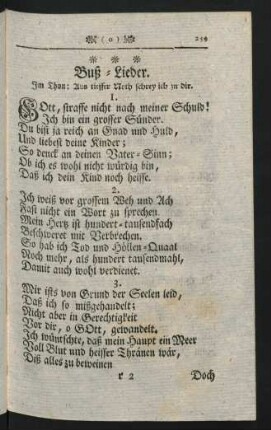 ( o )
* * *
Buß-Lieder.
Im Thon: Aus tieffer Noth schrey ich zu dir.
1.
GOtt, straffe nicht nach meiner Schuld!
Ich bin ein grosser Sünder.
Du bist ja reich an Gnad und Huld,
Und liebest deine Kinder;
So denck an deinen Vater-Sinn;
Ob ich es wohl nicht würdig bin,
Daß ich dein Kind noch heisse.
2.
Ich weiß vor grossem Weh und Ach
Fast nicht ein Wort zu sprechen.
Mein Hertz ist hundert-tausendfach
Beschweret mit Verbrechen.
So hab ich Tod und Höllen-Quaal
Noch mehr, als hundert tausendmahl,
Damit auch wohl verdienet.
3.
Mir ists von Grund der Seelen leid,
Daß ich so mißgehandelt;
Nicht aber in Gerechtigkeit
Vor dir, o GOtt, gewandelt.
Ich wünschte, daß mein Haupt ein Meer
Voll Blut und heisser Thränen wär,
Diß alles zu beweinen
r 2 Doch